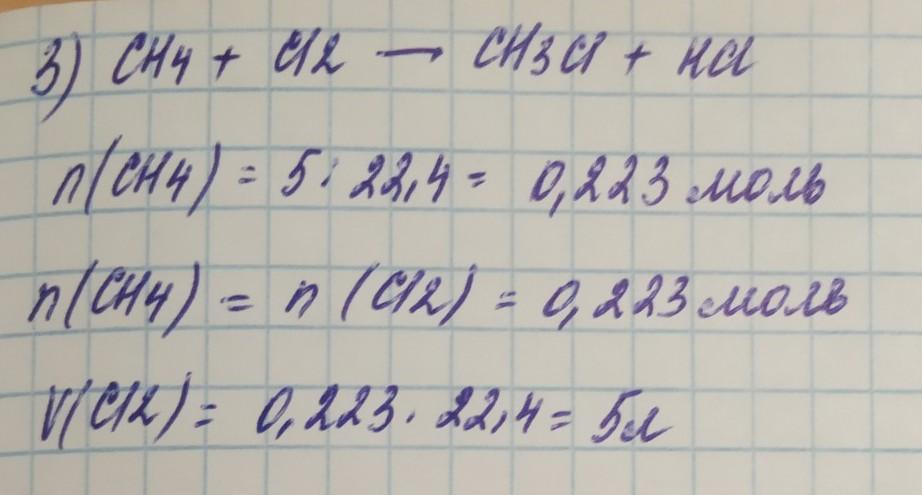 3) CH4 + Cl2 → CH3Cl + HCl
n(CH4) = 5 : 22,4 = 0,223 моль
n(CH4) = n (Cl2) = 0,223 моль
V(Cl2) = 0,223 · 22,4 = 5л